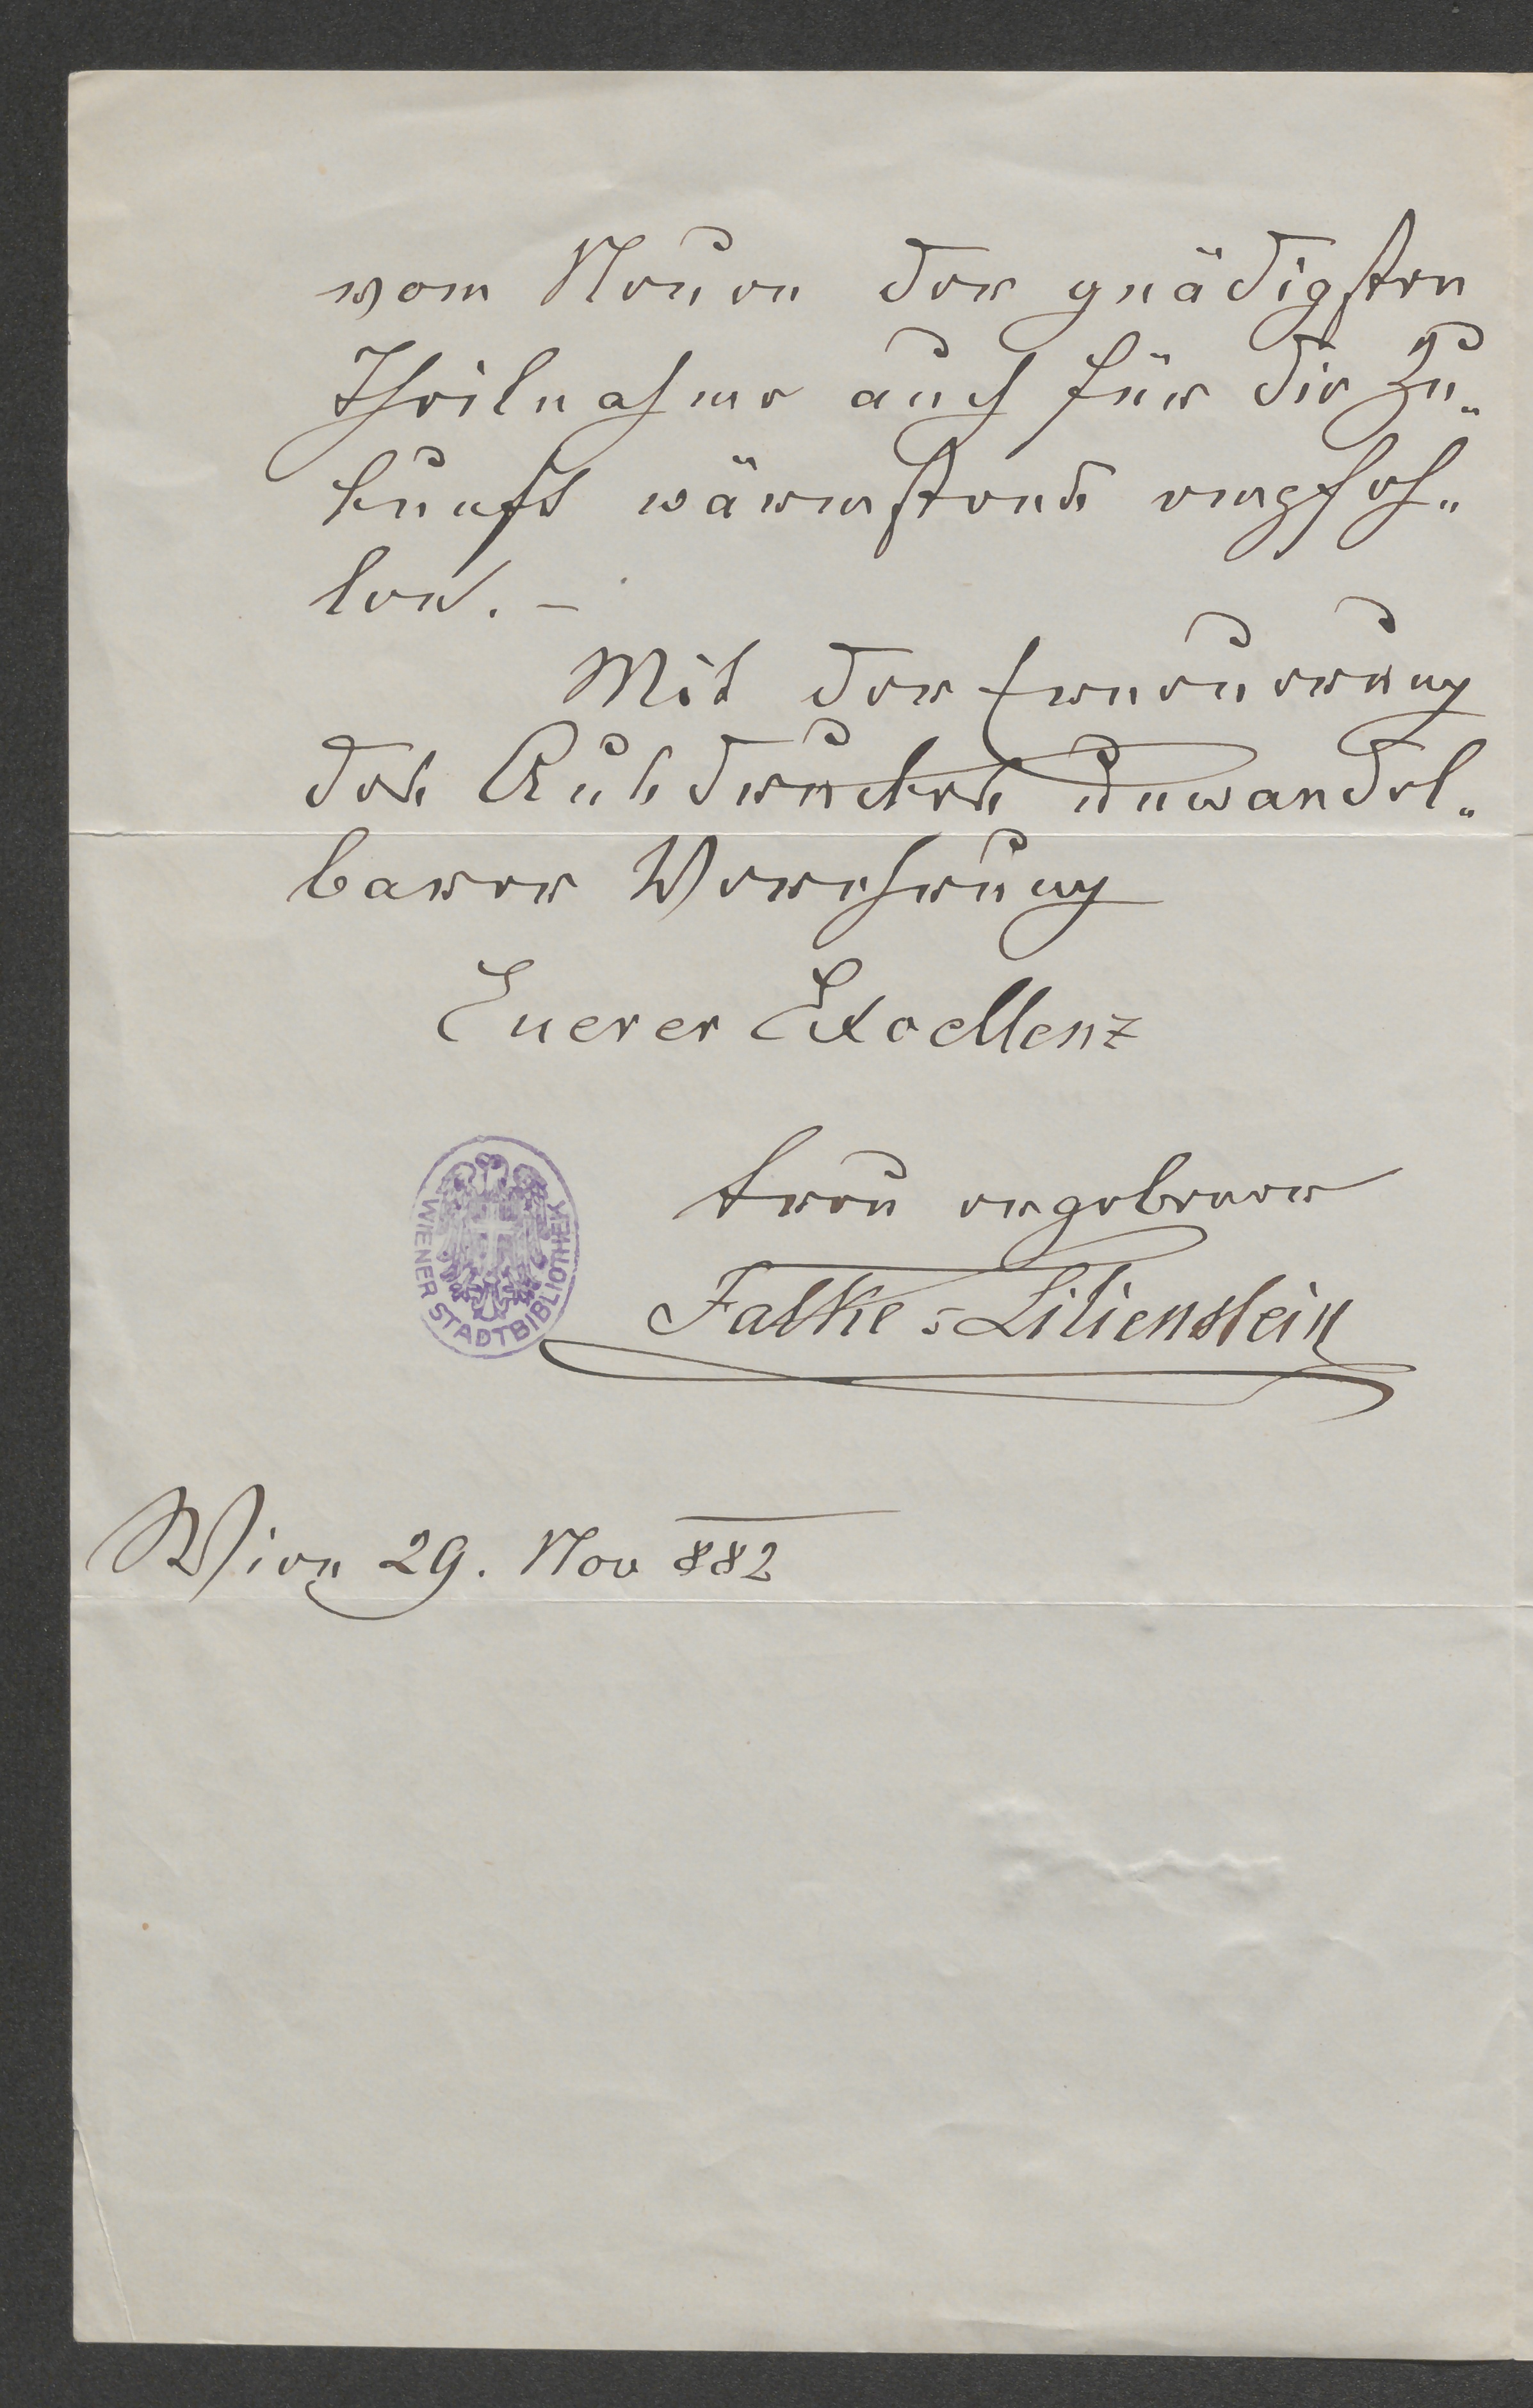 vom Neuen der gnädigsten
Theilnahme auch für die Zu„
kunft wärmstens empfoh„
len. –
Mit der Erneuerung
des Ausdruckes unwandel„
barer Verehrung
Euerer Excellenz
treu ergebener
Falke=Lilienstein
WIENER STADTBIBLIOTHEK
Wien 29. Nov 882